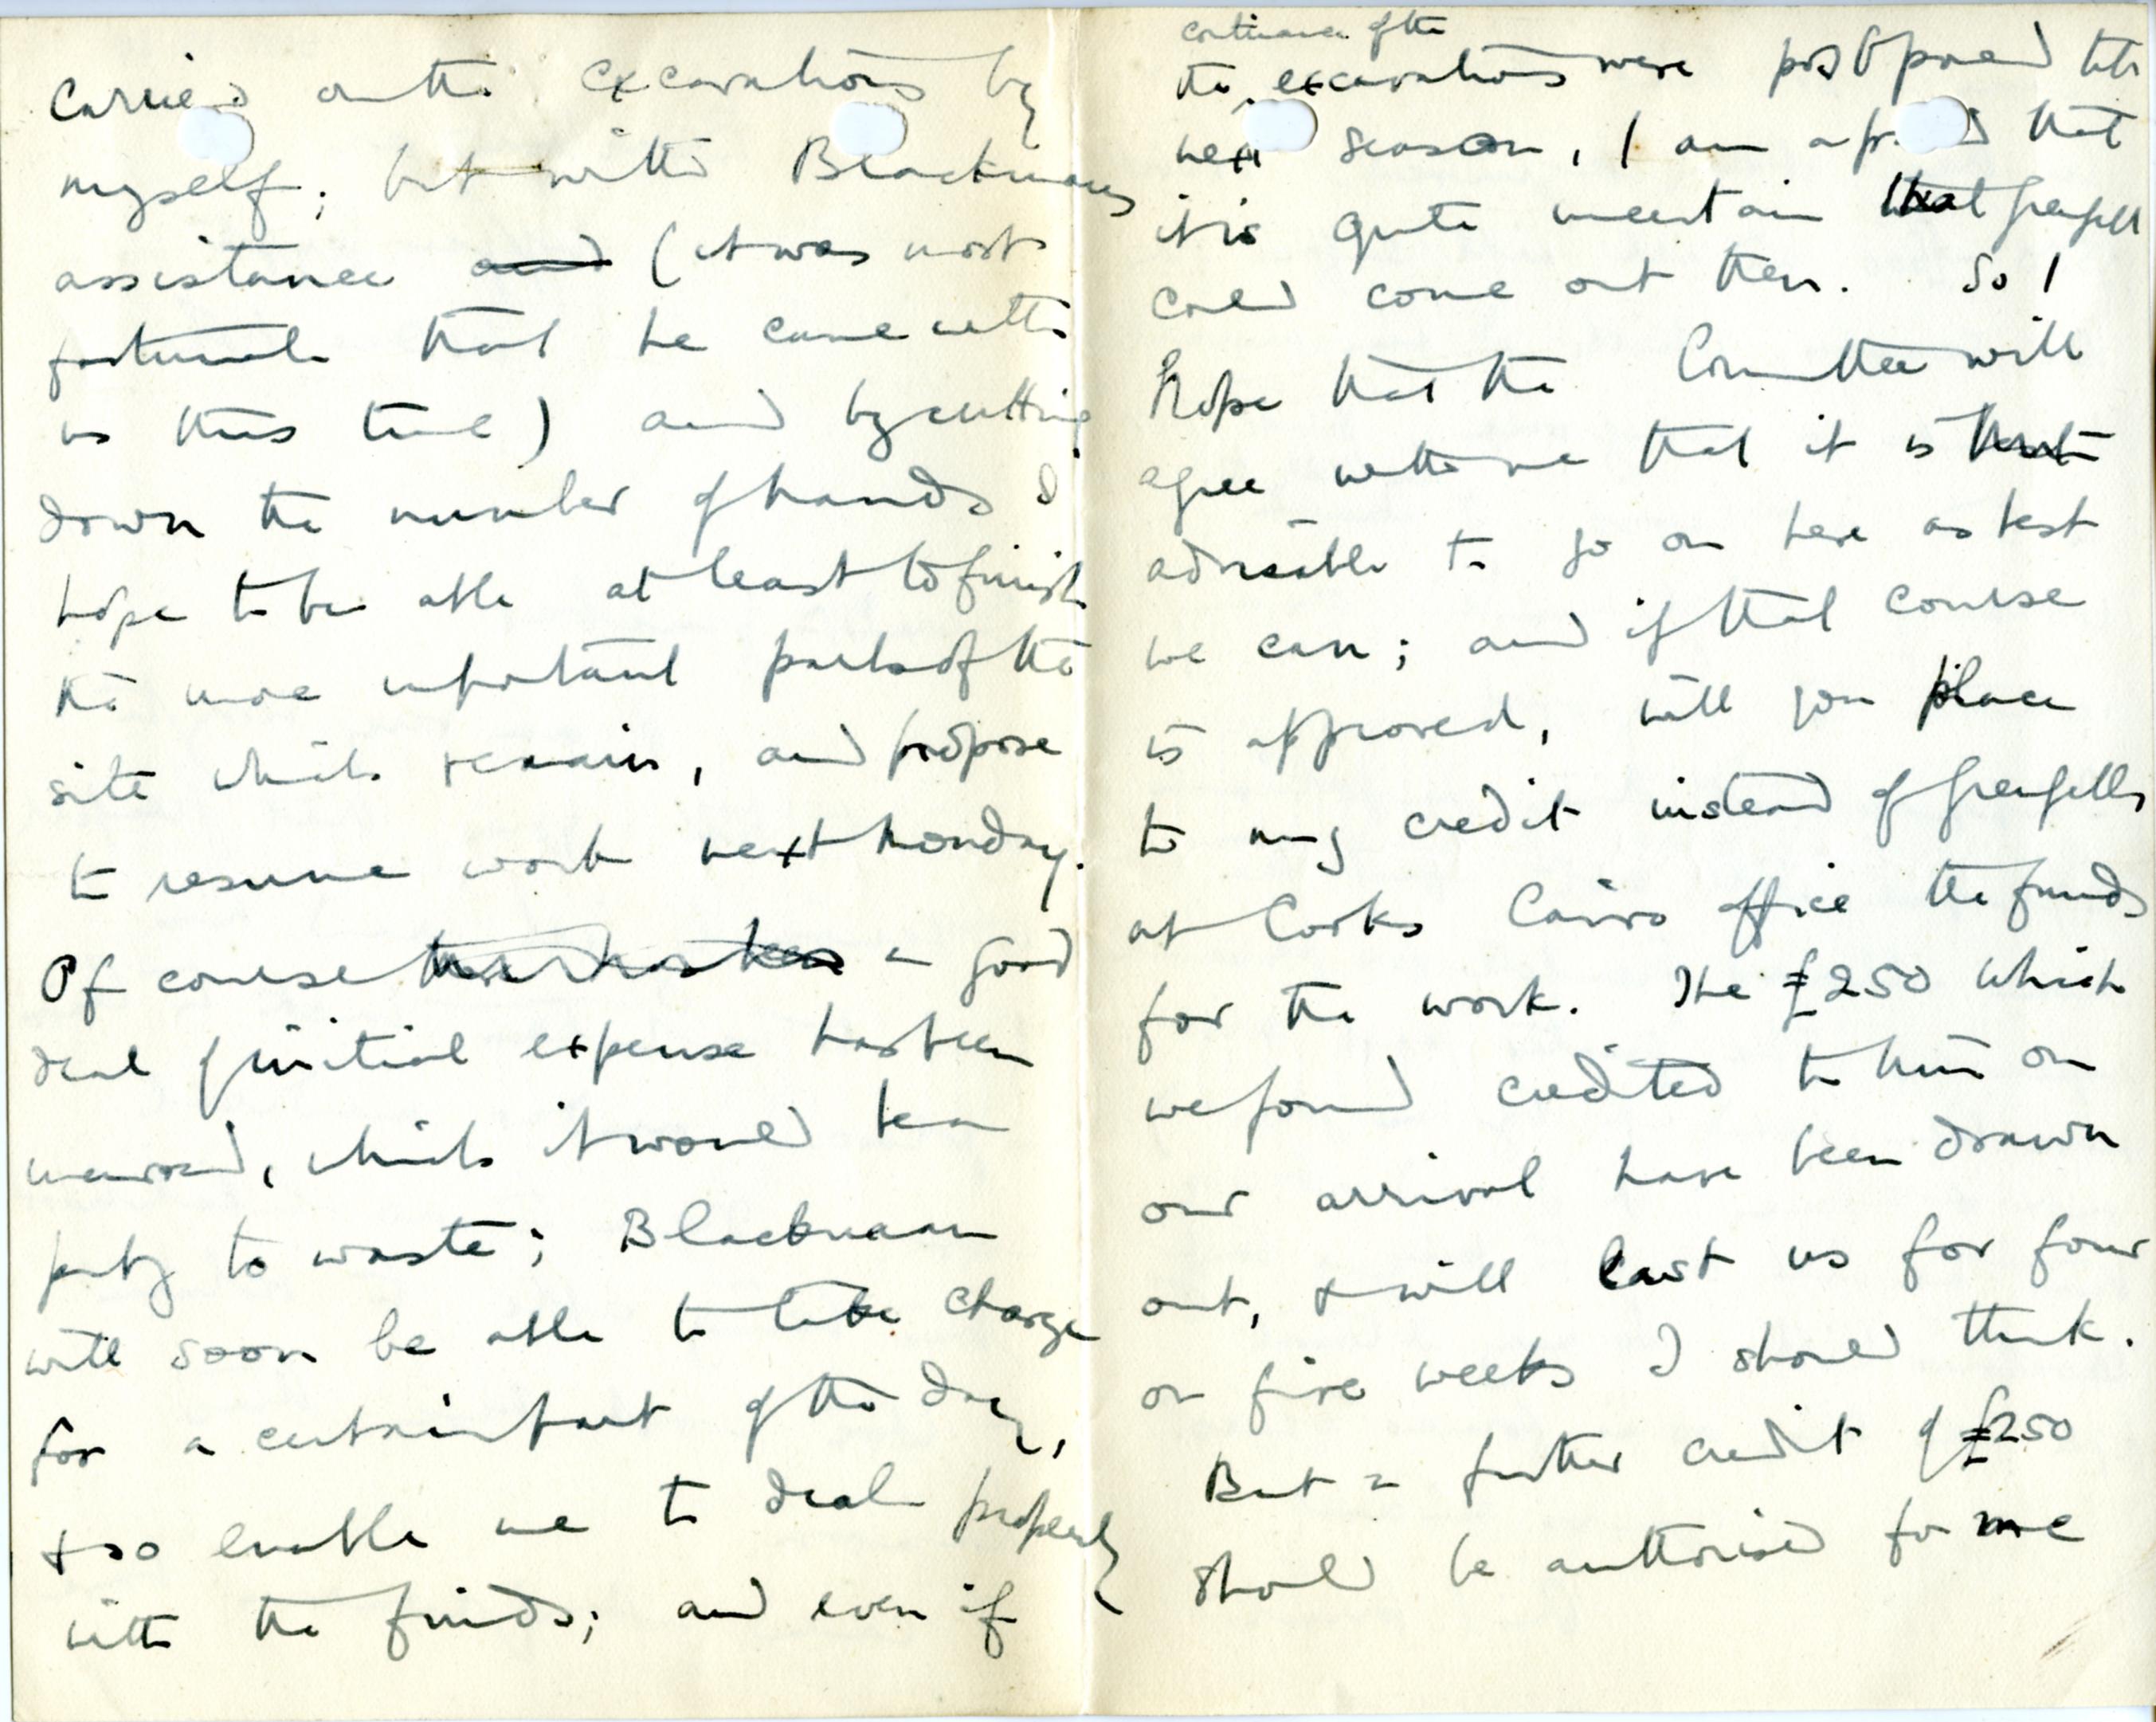 carried on the excavations by
myself; but with Blackmans
assistance and (it was most
fortunate that he came with
us this time) and by cutting
down the number of hands I
hope to be able at least to finish
the more important parts of the
site which remain, and propose
to resume work next Monday.
Of course there has been a good
deal of initial expense has been
incurred, which it would be a
pity to waste; Blackman
will soon be able to take charge
for a certain part of the day,
& so enable me to deal properly
with the finds; and even if
continuance of the
the excavations were postponed till
next season, I am afraid that
it is quite uncertain that Grenfell
could come out then. So I
hope that the Committee will
agree with me that it is
advisable to go on here as best
we can; and if that course
is approved, will you place
to my credit instead of Grenfells
at Cooks Cairo office the funds
for the work. The £250 which
we found credited to him on
our arrival have been drawn
out, & will last us for four
or five weeks I should think.
But a further credit of £250
should be authorised for me